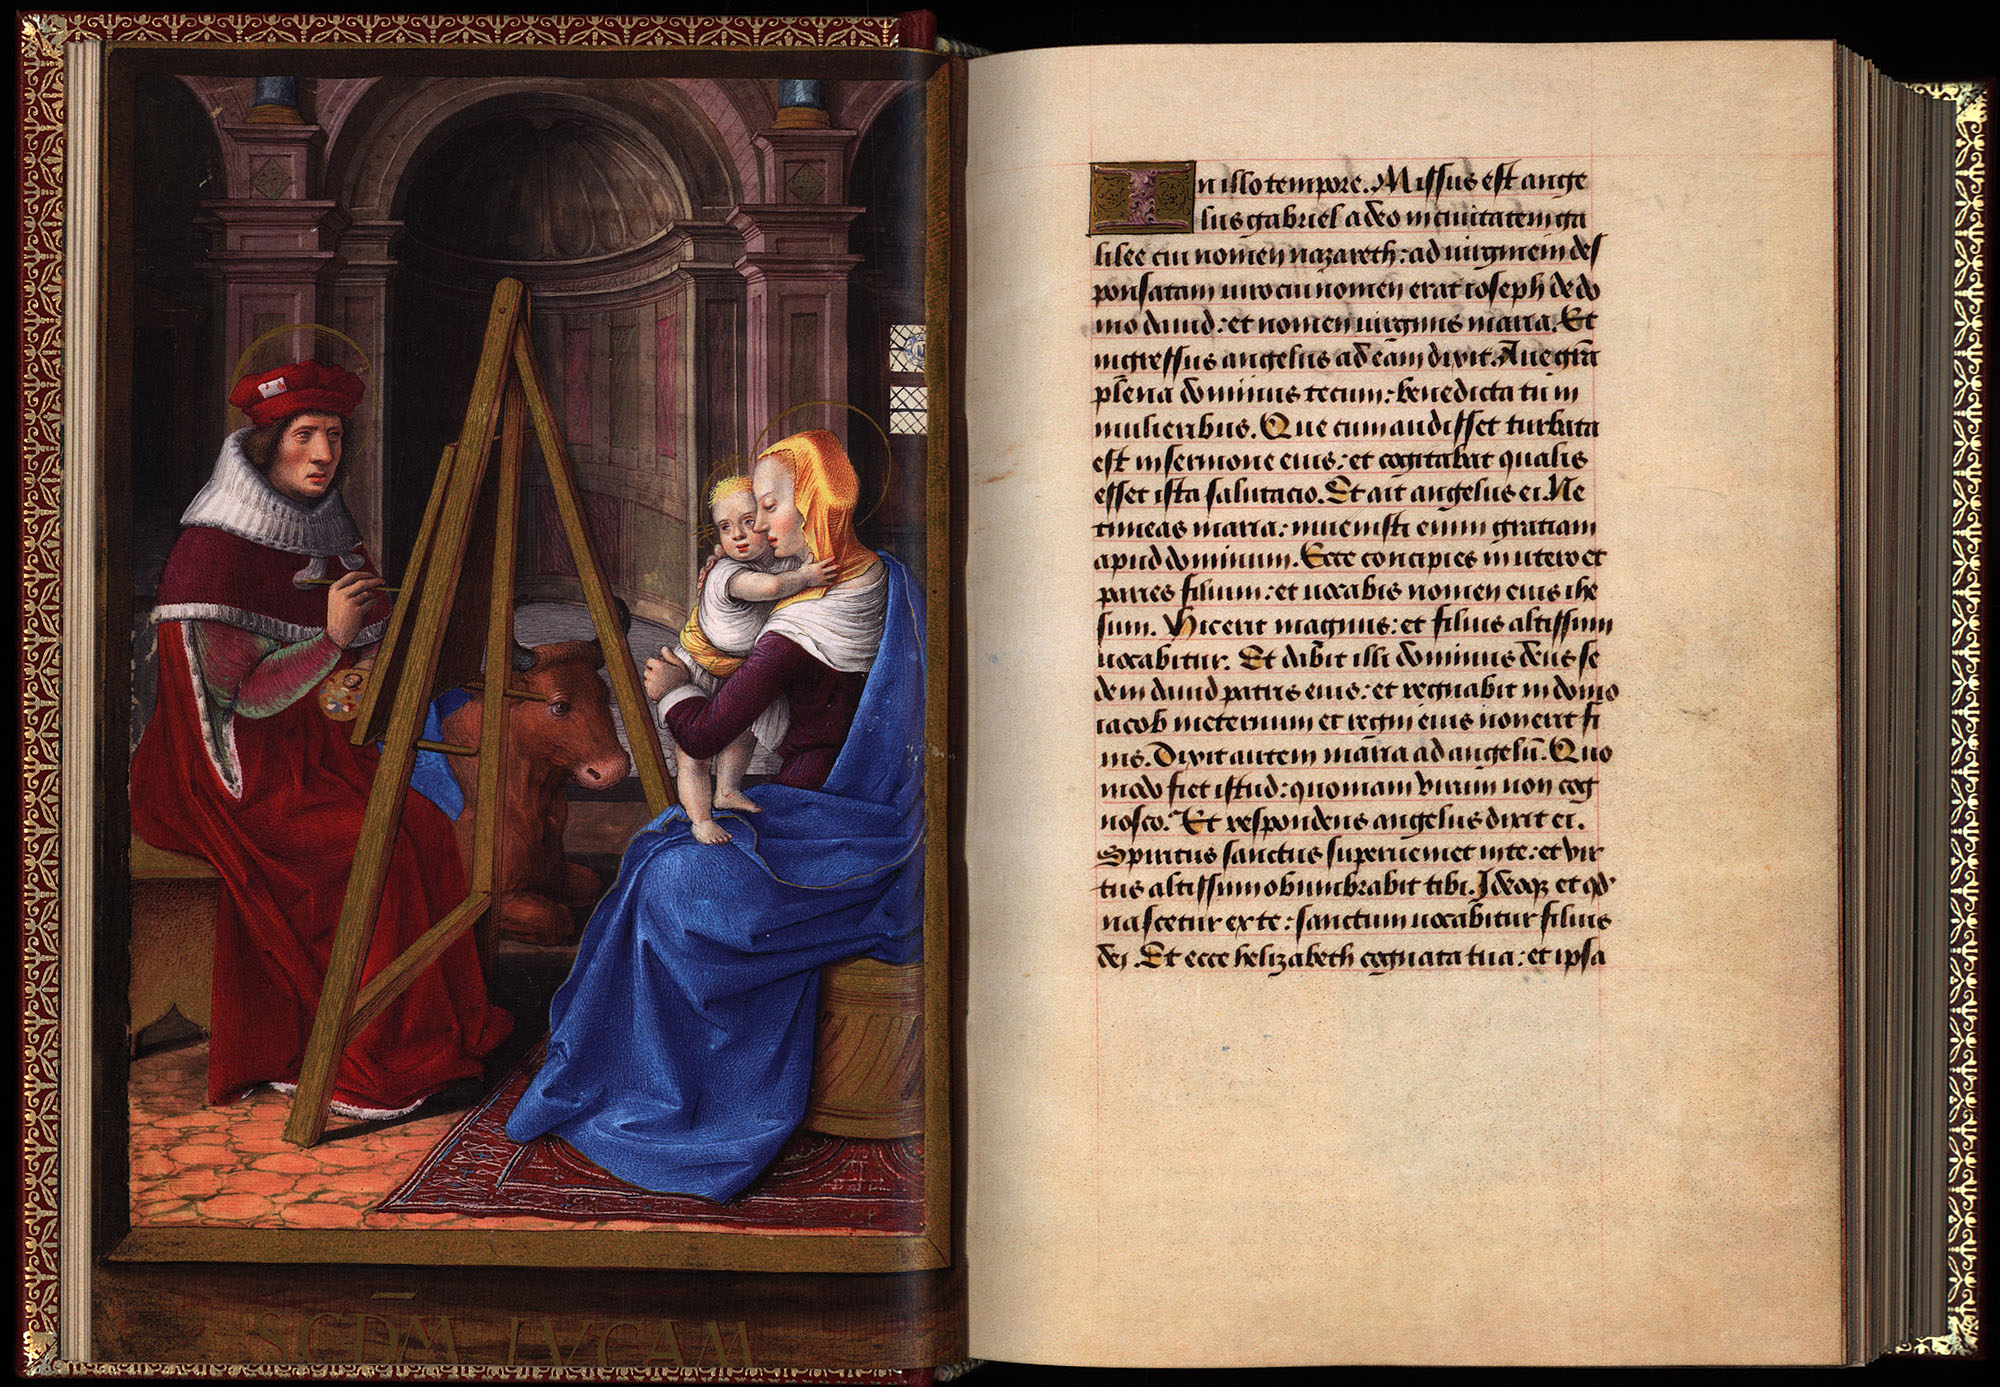 SCDM LVCAM
In illo tempore. Missus est ange
lus gabriel a deo in ciuitatem ga
lilee cui nomen nazareth: ad uirginem des
ponsatam uiro cui nomen erat ioseph de do
mo dauid: et nomen uirginis maria. Et
ingressus angelus ad eam dixit. Aue gr̄a
plena dominus tecum: benedicta tu in
mulieribus. Que cum audisset turbata
est in sermone eius: et cogitabat qualis
esset ista salutacio. Et ait angelus ei. Ne
timeas maria: inuenisti enim gratiam
apud dominum. Ecce concipies in utero et
paries filium: et uocabis nomen eius ihe
sum. Hic erit magnus: et filius altissimi
uocabitur. Et dabit illi dominus deus se
dem dauid patris eius: et regnabit in domo
iacob in eternum et regni eius non erit fi
nis. Dixit autem maria ad angelū. Quo
modo fiet istud: quoniam virum non cog
nosco. Et respondens angelus dixit ei.
Spiritus sanctus superueniet in te: et vir
tus altissimi obumbrabit tibi. Ideoqꝫ et qd'
nascetur ex te: sanctum uocabitur filius
dei. Et ecce helizabeth cognata tua: et ipsa